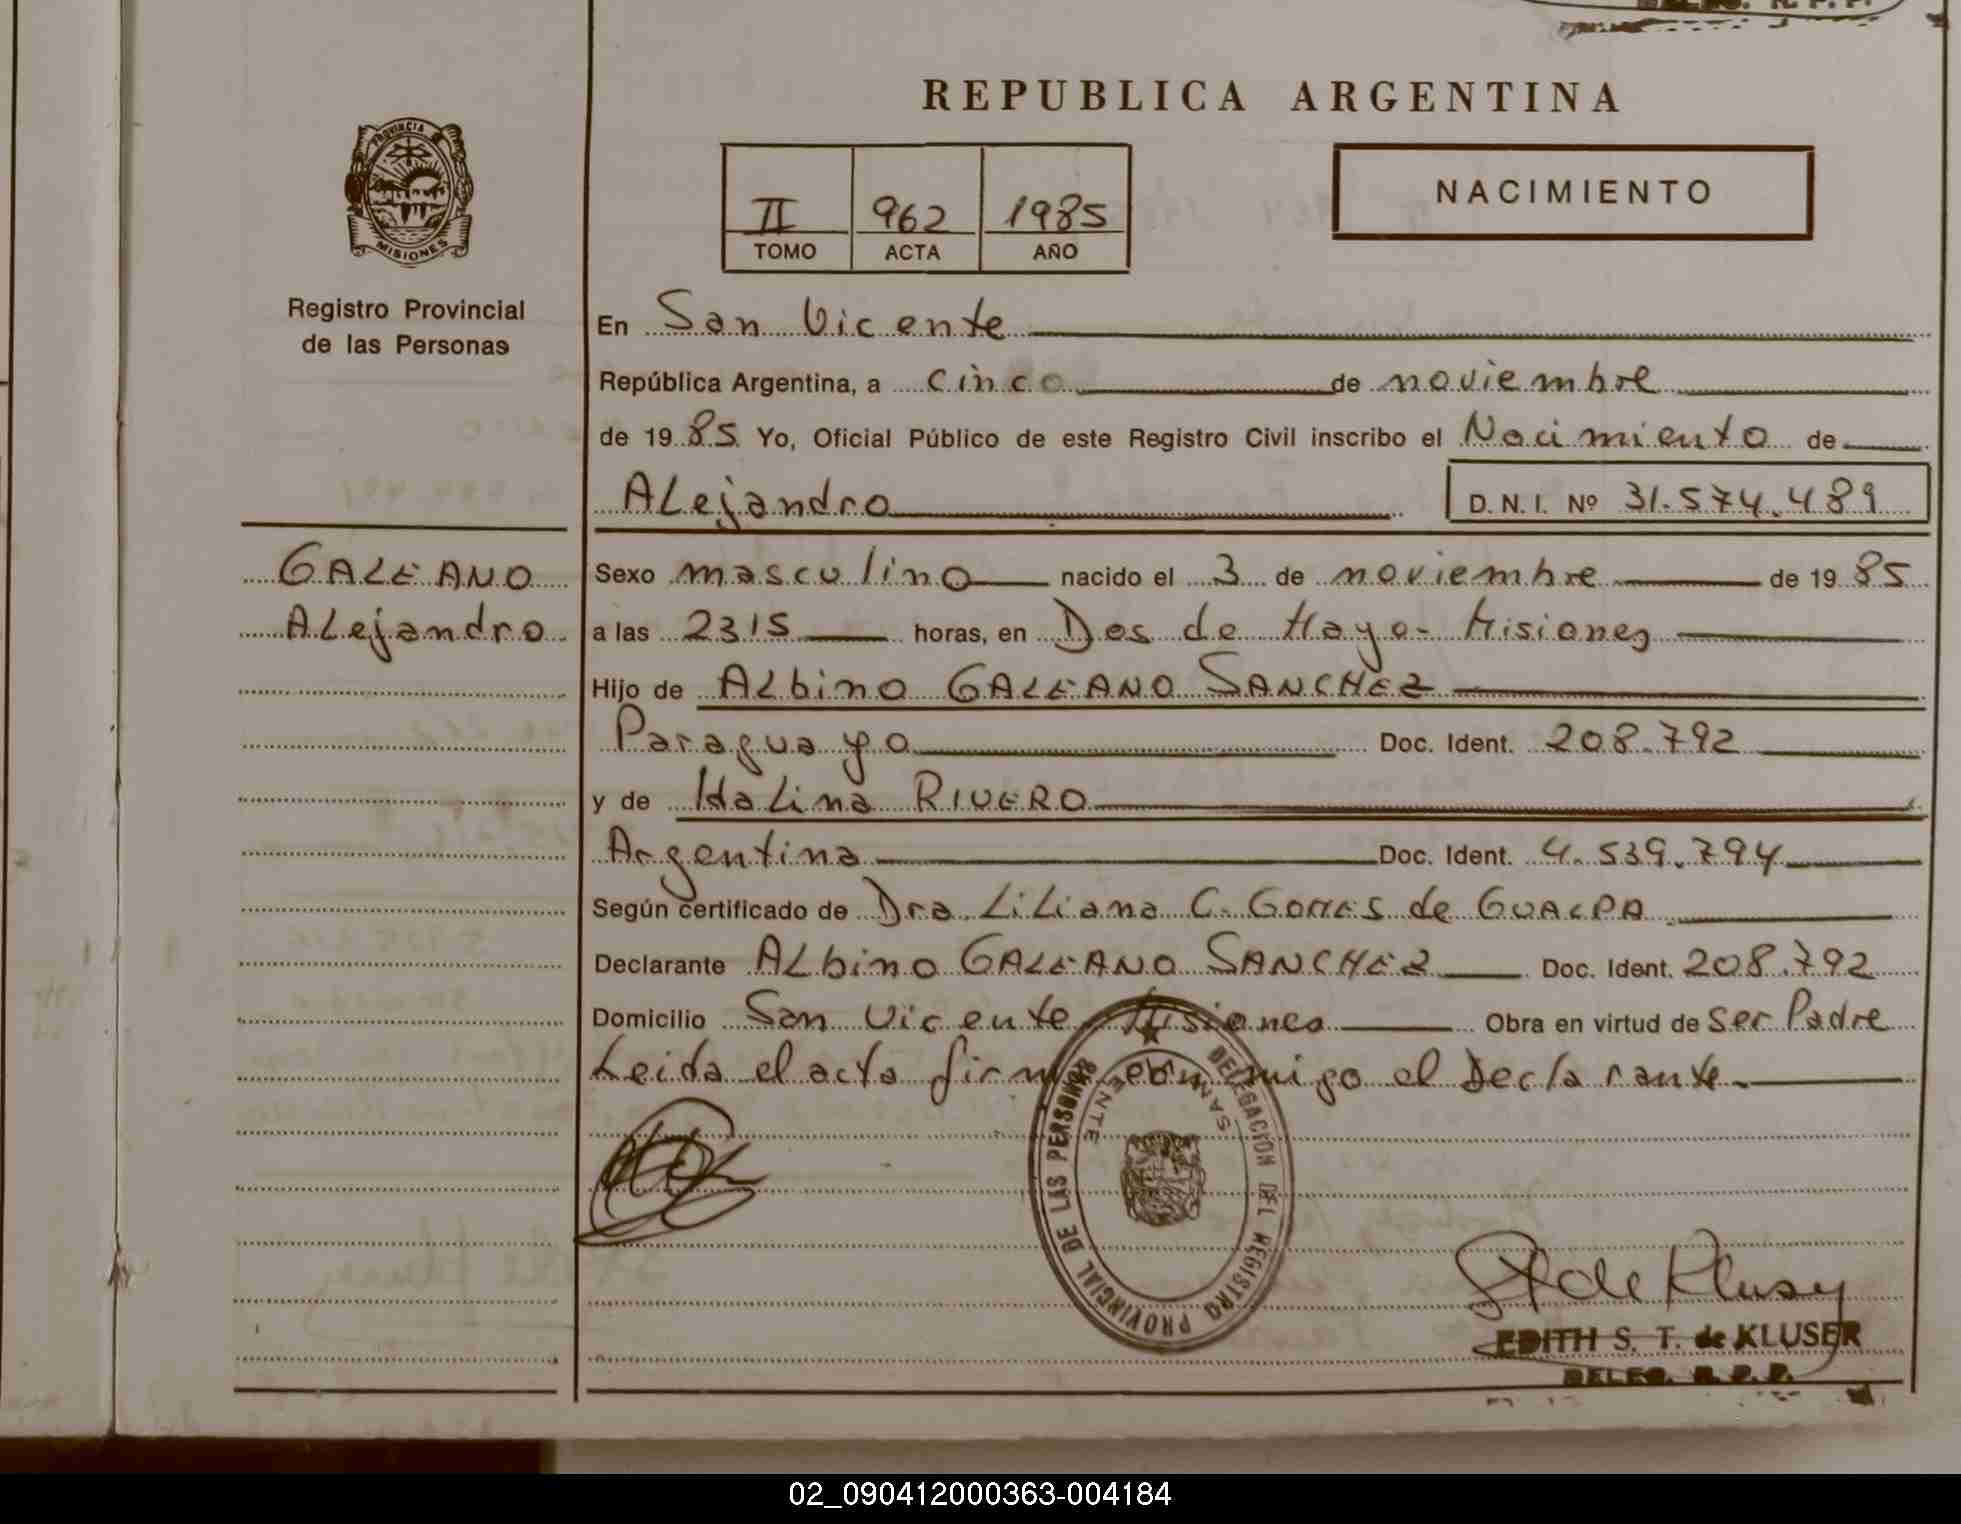 DELEG. R. P. P.
REPUBLICA ARGENTINA
PROVINCIA
MISIONES
Registro Provincial
de las Personas
II 962 1985
TOMO ACTA AÑO
NACIMIENTO
En San Vicente
República Argentina, a cinco de noviembre
de 19 85 Yo, Oficial Público de este Registro Civil inscribo el Nacimiento de
ALejandro D. N. I. Nº 31.574.489
GALEANO
ALejandro
Sexo masculino nacido el 3 de noviembre de 19 85
a las 2315 horas, en Dos de Mayo - Misiones
Hijo de ALbino GALEANO SANCHEZ
Paraguayo Doc. Ident. 208.792
y de IdaLina RIVERO
Argentina Doc. Ident. 4.539.794
Según certificado de Dra. LiLiana C. de
Declarante ALbino GALEANO SANCHEZ Doc. Ident. 208.792
Domicilio San Vicente Misiones Obra en virtud de ser Padre
Leida el acta firma conmigo el Declarante
DELEGACION DEL REGISTRO PROVINCIAL DE LAS PERSONAS
SAN VICENTE
EDITH S. T. de KLUSER
DELEG. R. P. P.
02_090412000363-004184